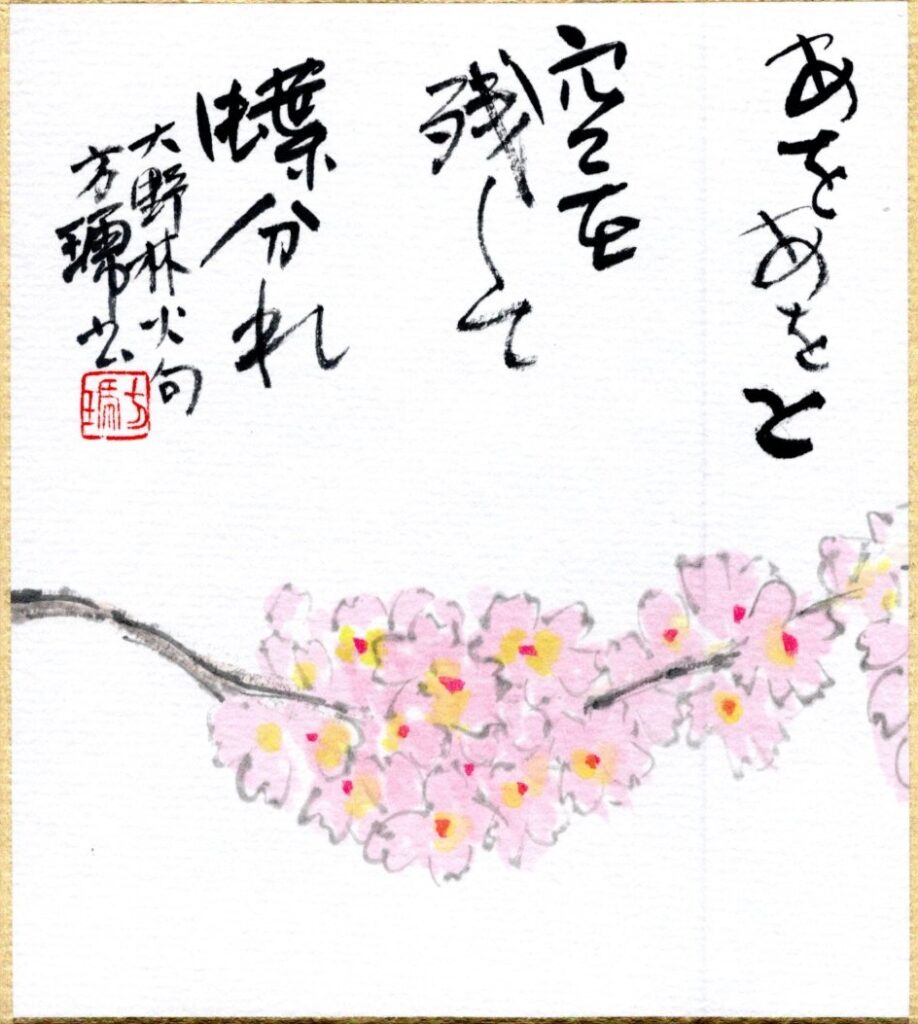 あをあをと
空を
残して
蝶分れ
大野林火句
方 书